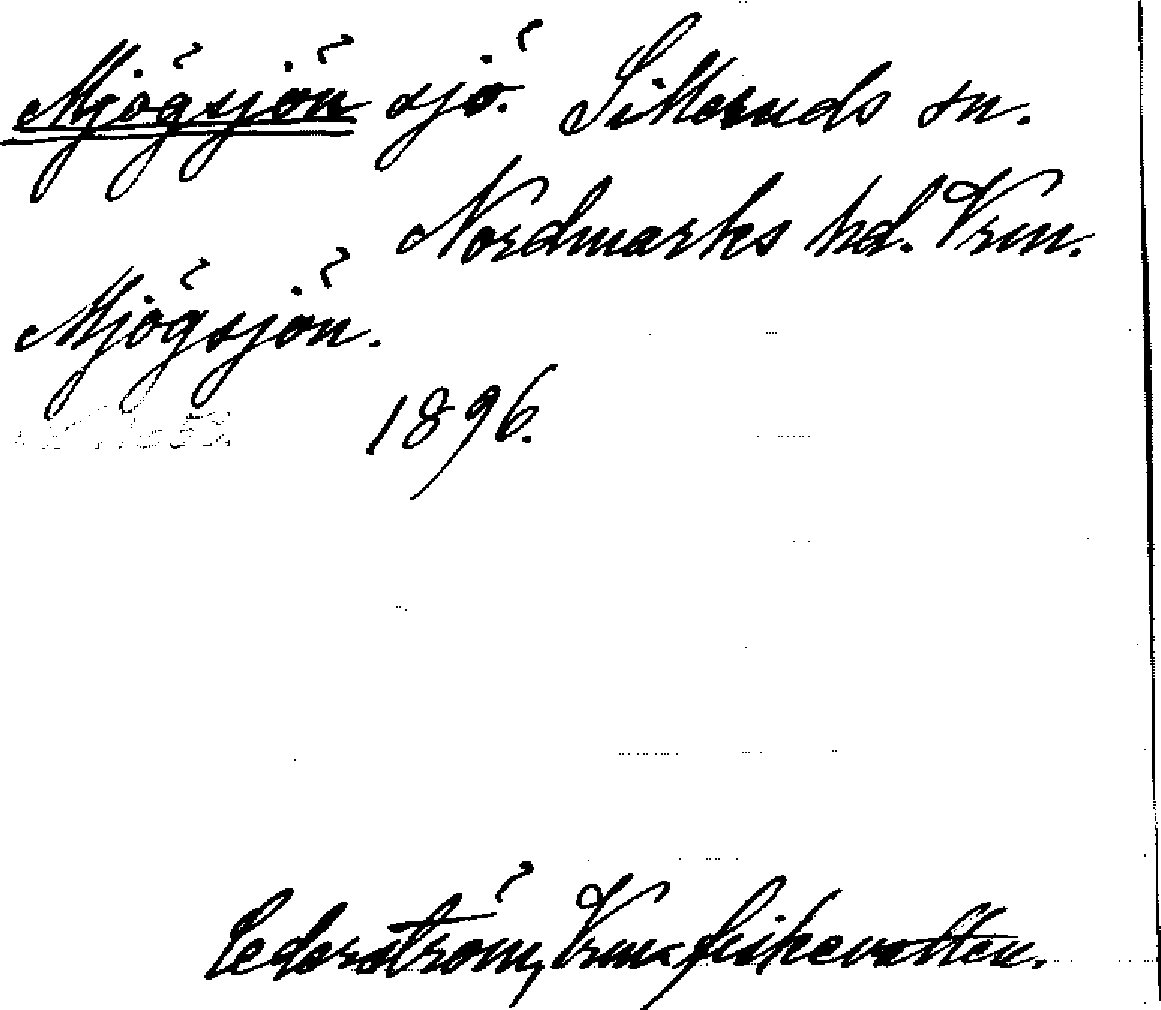 Mjögsjön sjö. Silleruds sn.
Nordmarks hd. Vrm.
Mjögsjön.
1896.
Cederström, Vrm:s fiskevatten.